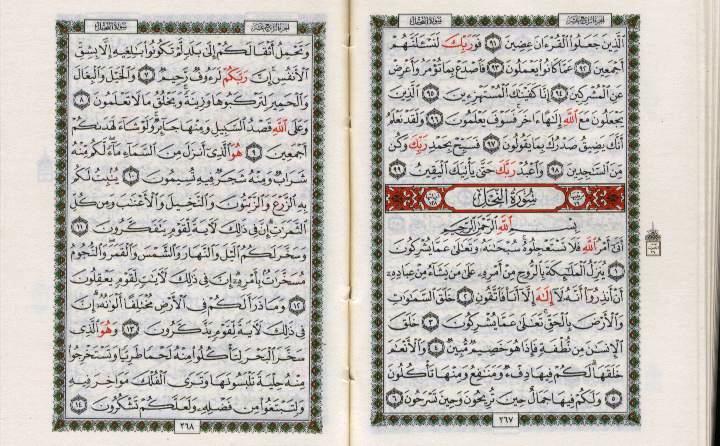 الَّذِينَ جَعَلُوا الْقُرْءَانَ عِضِينَ ٩١ فَوَرَبِّكَ لَنَسْـَٔلَنَّهُمْ
أَجْمَعِينَ ٩٢ عَمَّا كَانُوا يَعْمَلُونَ ٩٣ فَاصْدَعْ بِمَا تُؤْمَرُ وَأَعْرِضْ
عَنِ الْمُشْرِكِينَ ٩٤ إِنَّا كَفَيْنَٰكَ الْمُسْتَهْزِءِينَ ٩٥ الَّذِينَ
يَجْعَلُونَ مَعَ اللَّهِ إِلَٰهًا ءَاخَرَ فَسَوْفَ يَعْلَمُونَ ٩٦ وَلَقَدْ نَعْلَمُ
أَنَّكَ يَضِيقُ صَدْرُكَ بِمَا يَقُولُونَ ٩٧ فَسَبِّحْ بِحَمْدِ رَبِّكَ وَكُن
مِّنَ السَّٰجِدِينَ ٩٨ وَاعْبُدْ رَبَّكَ حَتَّىٰ يَأْتِيَكَ الْيَقِينُ ٩٩
سُورَةُ النَّحْلِ
بِسْمِ اللَّهِ الرَّحْمَٰنِ الرَّحِيمِ
أَتَىٰٓ أَمْرُ اللَّهِ فَلَا تَسْتَعْجِلُوهُ سُبْحَٰنَهُ وَتَعَٰلَىٰ عَمَّا يُشْرِكُونَ
١ يُنَزِّلُ الْمَلَٰٓئِكَةَ بِالرُّوحِ مِنْ أَمْرِهِ عَلَىٰ مَن يَشَآءُ مِنْ عِبَادِهِ
أَنْ أَنذِرُوٓا أَنَّهُ لَآ إِلَٰهَ إِلَّآ أَنَا فَاتَّقُونِ ٢ خَلَقَ السَّمَٰوَٰتِ
وَالْأَرْضَ بِالْحَقِّ تَعَٰلَىٰ عَمَّا يُشْرِكُونَ ٣ خَلَقَ
الْإِنسَٰنَ مِن نُّطْفَةٍ فَإِذَا هُوَ خَصِيمٌ مُّبِينٌ ٤ وَالْأَنْعَٰمَ
خَلَقَهَا لَكُمْ فِيهَا دِفْءٌ وَمَنَٰفِعُ وَمِنْهَا تَأْكُلُونَ
٥ وَلَكُمْ فِيهَا جَمَالٌ حِينَ تُرِيحُونَ وَحِينَ تَسْرَحُونَ ٦
٢٦٧
وَتَحْمِلُ أَثْقَالَكُمْ إِلَىٰ بَلَدٍ لَّمْ تَكُونُوا بَٰلِغِيهِ إِلَّا بِشِقِّ
الْأَنفُسِ إِنَّ رَبَّكُمْ لَرَءُوفٌ رَّحِيمٌ ٧ وَالْخَيْلَ وَالْبِغَالَ
وَالْحَمِيرَ لِتَرْكَبُوهَا وَزِينَةً وَيَخْلُقُ مَا لَا تَعْلَمُونَ ٨
وَعَلَى اللَّهِ قَصْدُ السَّبِيلِ وَمِنْهَا جَآئِرٌ وَلَوْ شَآءَ لَهَدَىٰكُمْ
أَجْمَعِينَ ٩ هُوَ الَّذِىٓ أَنزَلَ مِنَ السَّمَآءِ مَآءً لَّكُم مِّنْهُ
شَرَابٌ وَمِنْهُ شَجَرٌ فِيهِ تُسِيمُونَ ١٠ يُنۢبِتُ لَكُم
بِهِ الزَّرْعَ وَالزَّيْتُونَ وَالنَّخِيلَ وَالْأَعْنَٰبَ وَمِن كُلِّ
الثَّمَرَٰتِ إِنَّ فِى ذَٰلِكَ لَءَايَةً لِّقَوْمٍ يَتَفَكَّرُونَ ١١
وَسَخَّرَ لَكُمُ الَّيْلَ وَالنَّهَارَ وَالشَّمْسَ وَالْقَمَرَ وَالنُّجُومُ
مُسَخَّرَٰتٌۢ بِأَمْرِهِ إِنَّ فِى ذَٰلِكَ لَءَايَٰتٍ لِّقَوْمٍ يَعْقِلُونَ
١٢ وَمَا ذَرَأَ لَكُمْ فِى الْأَرْضِ مُخْتَلِفًا أَلْوَٰنُهُ إِنَّ
فِى ذَٰلِكَ لَءَايَةً لِّقَوْمٍ يَذَّكَّرُونَ ١٣ وَهُوَ الَّذِى
سَخَّرَ الْبَحْرَ لِتَأْكُلُوا مِنْهُ لَحْمًا طَرِيًّا وَتَسْتَخْرِجُوا
مِنْهُ حِلْيَةً تَلْبَسُونَهَا وَتَرَى الْفُلْكَ مَوَاخِرَ فِيهِ
وَلِتَبْتَغُوا مِن فَضْلِهِ وَلَعَلَّكُمْ تَشْكُرُونَ ١٤
٢٦٨